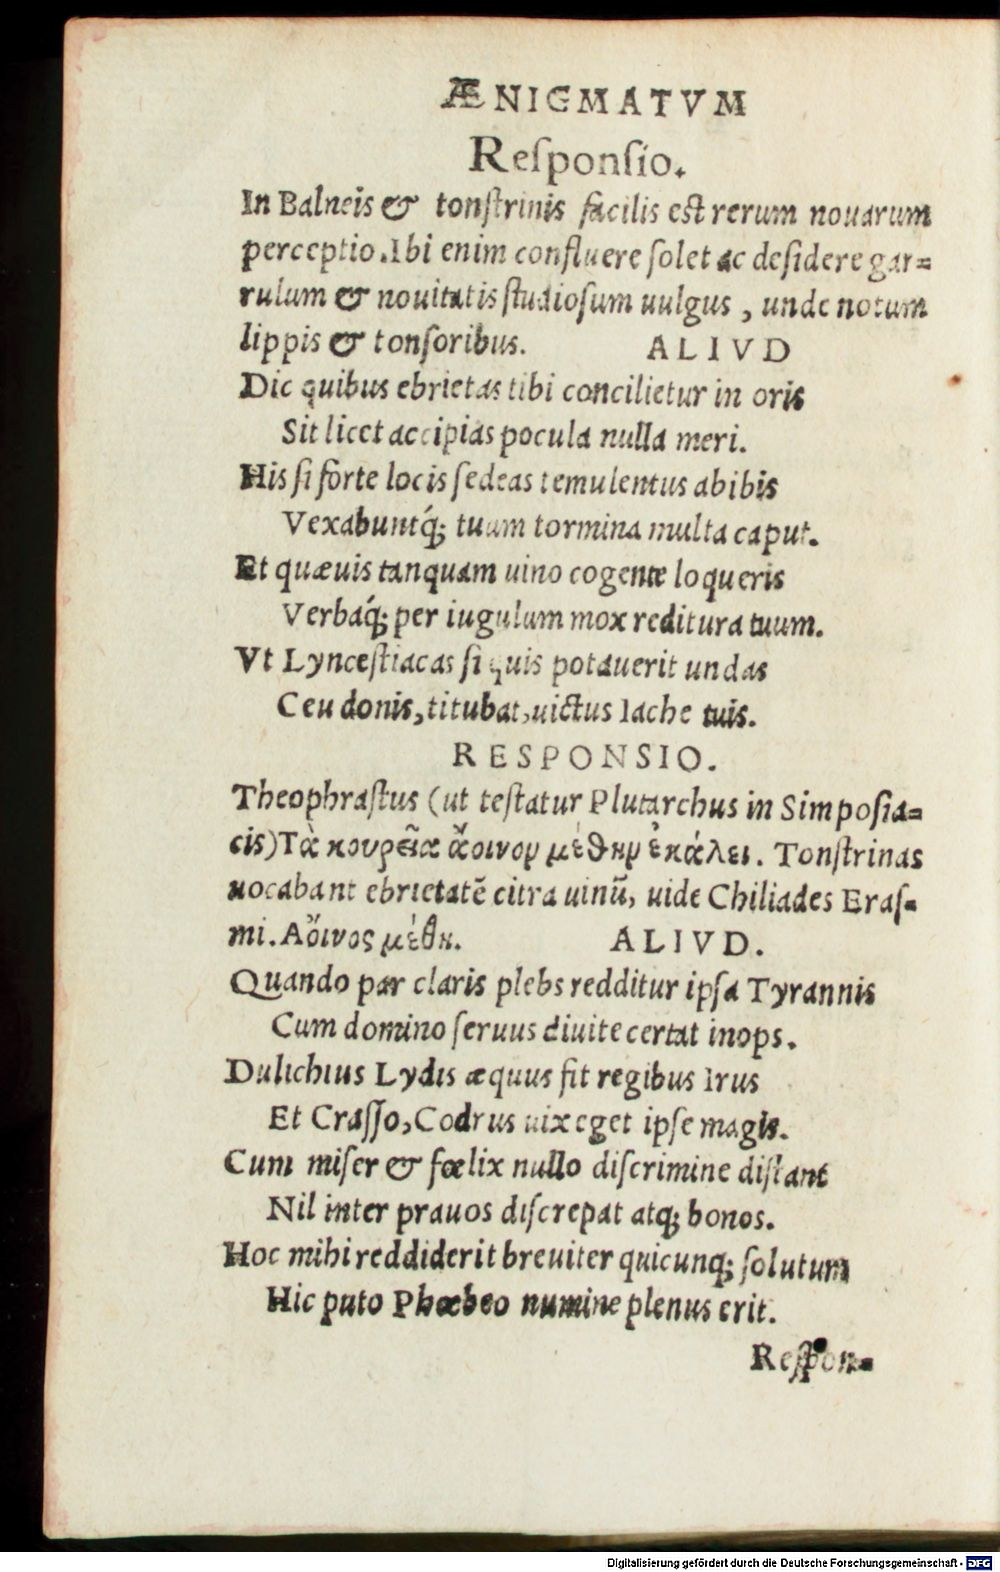 ÆNIGMATVM
Reſponſio.
In Balneis & tonſtrinis facilis est rerum nouarum
perceptio. Ibi enim confluere ſolet ac deſidere gar=
rulum & nouitatis ſtudioſum uulgus, unde notum
lippis & tonſoribus. ALIVD
Dic quibus ebrietas tibi concilietur in oris
Sit licet accipias pocula nulla meri.
His ſi forte locis ſedeas temulentus abibis
Vexabuntq́; tuum tormina multa caput.
Et quæuis tanquam uino cogente loqueris
Verbaq́; per iugulum mox reditura tuum.
Vt Lynceſtiacas ſi quis potauerit undas
Ceu donis, titubat, uictus Iache tuis.
RESPONSIO.
Theophraſtus (ut teſtatur Plutarchus in Simpoſia=
cis) Τὰ κουρεῖα ἄοινον μέθην ἐκάλει. Tonſtrinas
uocabant ebrietatē citra uinū, uide Chiliades Eraſ=
mi. Αὄινος μέθη. ALIVD.
Quando par claris plebs redditur ipſa Tyrannis
Cum domino ſeruus diuite certat inops.
Dulichius Lydis æquus fit regibus Irus
Et Craſſo, Codrus uix eget ipſe magis.
Cum miſer & fœlix nullo diſcrimine diſtant
Nil inter prauos diſcrepat atq; bonos.
Hoc mihi reddiderit breuiter quicunq; ſolutum
Hic puto Phœbeo numine plenus erit.
Reſpon=
Digitalisierung gefördert durch die Deutsche Forschungsgemeinschaft - DFG